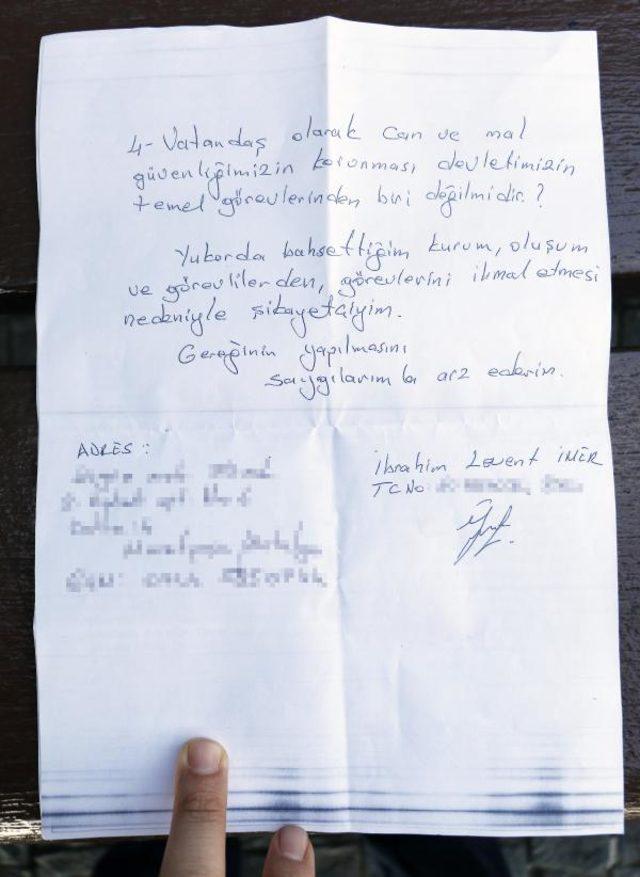 4- Vatandaş olarak can ve mal
güvenliğimizin korunması devletimizin
temel görevlerinden biri değilmidir.?
Yukarda bahsettiğim kurum, oluşum
ve görevlilerden, görevlerini ihmal etmesi
nedeniyle şikayetçiyim.
Gereğinin yapılmasını
saygılarımla arz ederim.
ADRES :
İbrahim Levent İNER
TC No